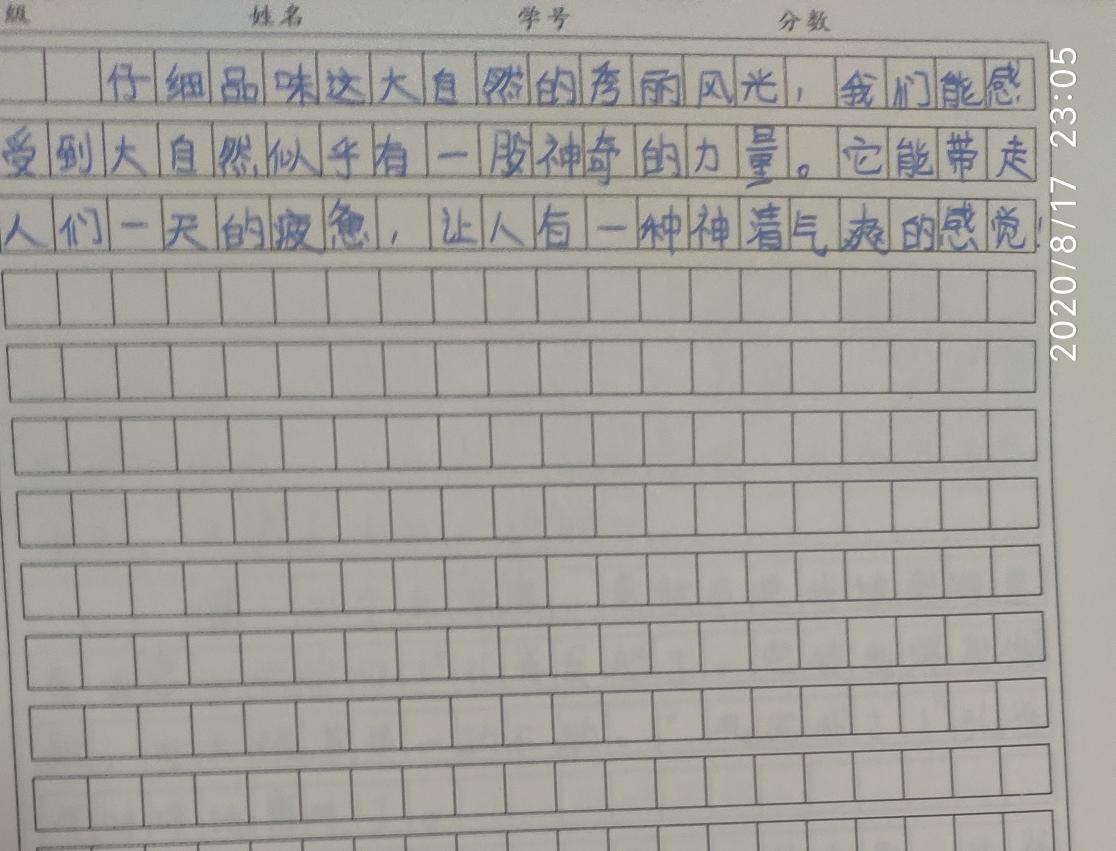 級 姓名 学号 分数
仔细品味这大自然的秀丽风光，我们能感
受到大自然似乎有一股神奇的力量。它能带走
人们一天的疲惫，让人有一种神清气爽的感觉！
2020/8/17 23:05